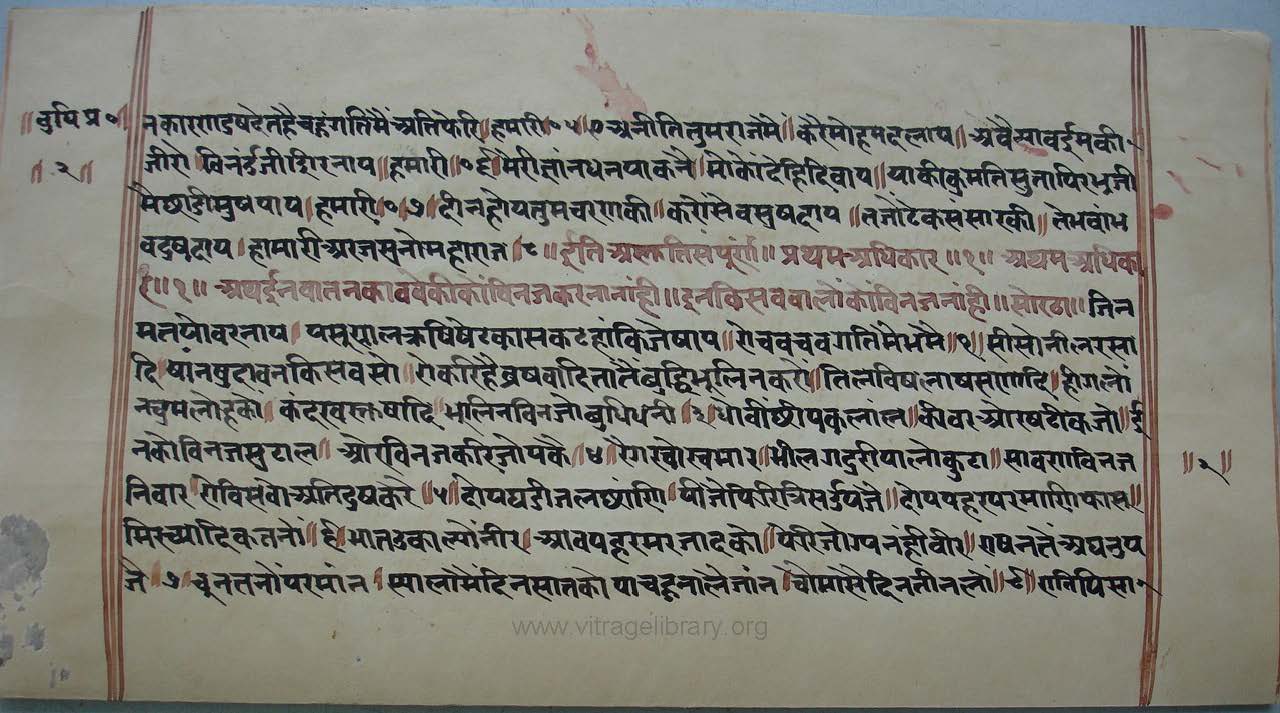 ॥बुधि प्र॰॥
॥२॥
नकारणदुषदेतहैचहुंगतिमैंअतिफेरि॥हमारी॰५॥अनीतितुमराजमैं॥करैमोहमदलाय॥अवैसावर्इमकी
जीरो॥विनंईजीशिरनाय॥हमारी॥॰६॥मेरीज्ञांनधनपाकनै॥मोकोंदेहिदिवाय॥याकीकुमतिसुताफिरभुजी
मैछाडीसुषपाय॥हमारी॰७॥दीनहोयतुमचरणकी॥करोंसेवसुषदाय॥तजोंटेकसंसारकी॥तेभवांभ
वदुषदाय॥हामारीअरजसुनोमहाराज॥८॥ईतिअस्ततिसंपूर्ण॥प्रथमअधिकार॥१॥अथमअधिका
र॥१॥अथईनवातनकाववेकीकांविनजकरनानांही॥इनकिसववालोंकोंविनजनांही॥सोरठा॥जिन
मतपोवरनाय॥पसुपालक्रषिषेटकासकटहांकिजेषाय॥रोचवचवगतिमैंभमै॥१॥सीसोनीलरसा
दि॥षांनषुदावनकिसवसो॥रोकरिहैव्रषवादितातैंबुद्धिभूलिनकरो॥तिलविषलाषसाणादि॥हीगलों
नचुमलोहको॥कंदूरवस्तषादि॥भूलिनविनजोबुधिधनी॥३॥धोवीछीपकलाल॥कोवरओरषटीकजो॥ई
नकोविनजसुटाल॥ओरविनजकरिजोपकै॥४॥रैगरषोस्वमार॥भीलगदुरीपालोकुटा॥सावणविनज
निवार॥रोविसवोअतिदुषकरे॥५॥दोयघडीजलछांणि॥पीजेफिरित्रिसर्उपजे॥दोयपहरपरमाणि॥फास
मिरच्यादिकतनो॥६॥भातउकाल्योंनीर॥आवपहरमरजादको॥फेरिजोग्पनंहीवीर॥राषनतेंअघनुप
जे॥७॥चूनतनोंपरमांन॥स्यालोमैंदिनसातकोपाचहूनालेजांन॥चोमासैदिनतीनलों॥८॥रातिपिसा
॥२॥
www.vitragelibrary.org